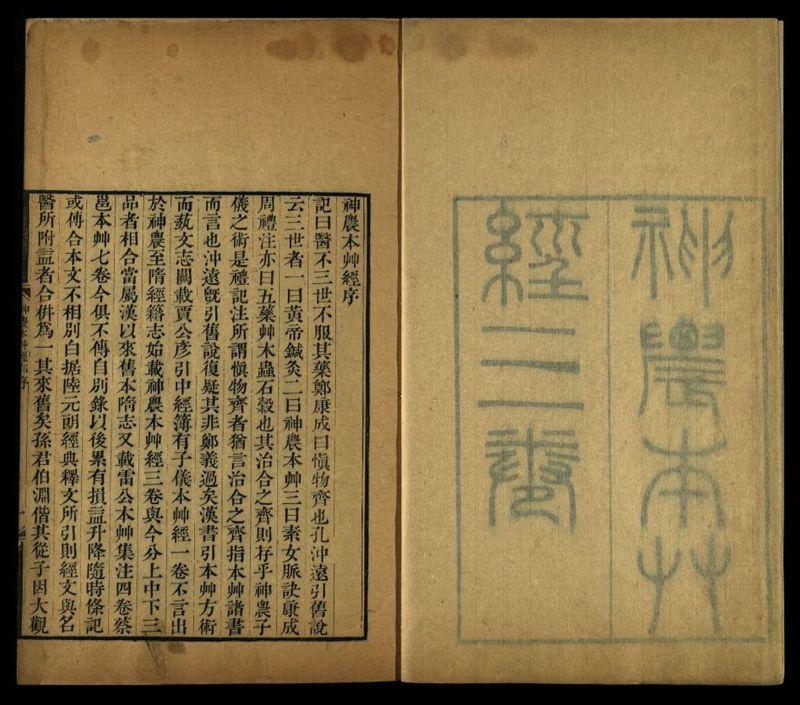 神農本艸
經三卷
神農本艸經序
記曰醫不三世不服其藥鄭康成曰愼物齊也孔沖遠引舊說
云三世者一曰黃帝鍼灸二曰神農本艸三曰素女脈訣康成
周禮注亦曰五藥艸木蟲石穀也其治合之齊則存乎神農子
儀之術是禮記注所謂愼物齊者猶言治合之齊指本艸諸書
而言也沖遠旣引舊說復疑其非鄭義過矣漢書引本艸方術
而蓺文志闕載賈公彥引中經簿有子儀本艸經一卷不言出
於神農至隋經籍志始載神農本艸經三卷與今分上中下三
品者相合當屬漢以來舊本隋志又載雷公本艸集注四卷蔡
邕本艸七卷今俱不傳自別錄以後累有損益升降隨時條記
或傳合本文不相別白据陸元朗經典釋文所引則經文與名
醫所附益者合併爲一其來舊矣孫君伯淵偕其從子因大觀
神農本艸經序